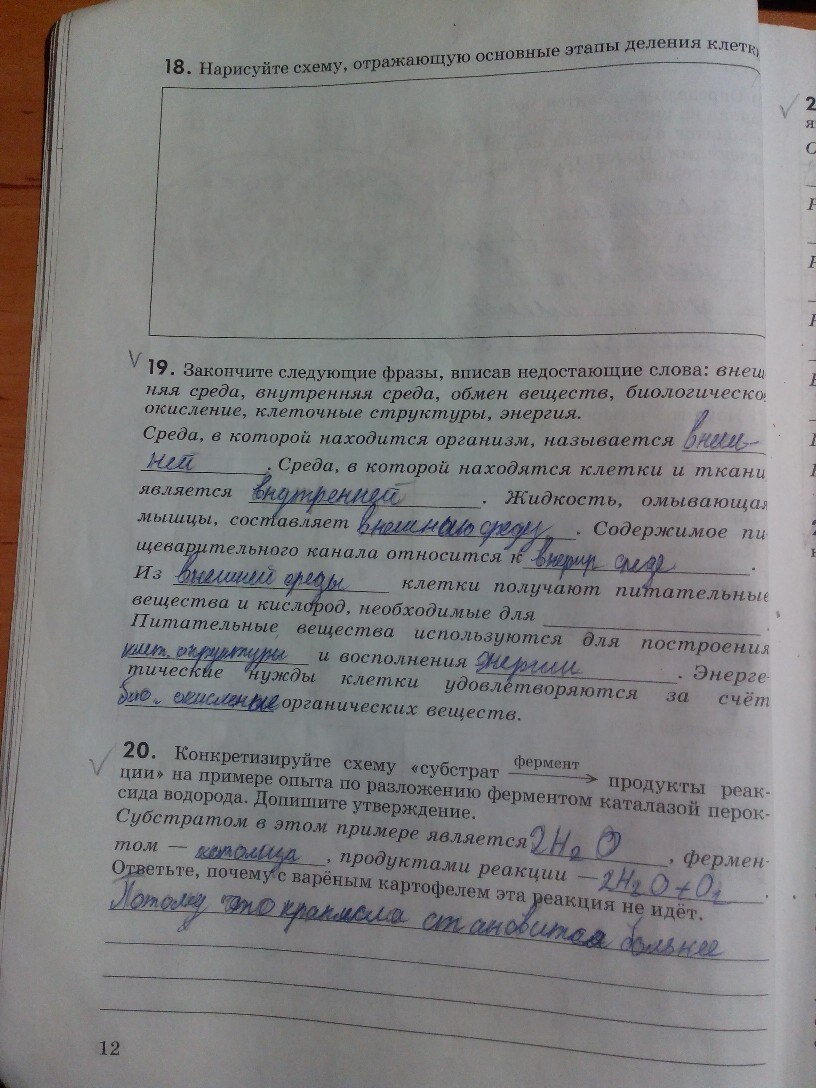 18. Нарисуйте схему, отражающую основные этапы деления клетк
19. Закончите следующие фразы, вписав недостающие слова: внеш
няя среда, внутренняя среда, обмен веществ, биологическо
окисление, клеточные структуры, энергия.
Среда, в которой находится организм, называется внеш-
ней . Среда, в которой находятся клетки и ткани
является внутренней . Жидкость, омывающая
мышцы, составляет внешнюю среду . Содержимое пи
щеварительного канала относится к среде .
Из внешней среды клетки получают питательные
вещества и кислород, необходимые для .
Питательные вещества используются для построения
клет. структуры и восполнения энергии . Энерге-
тические нужды клетки удовлетворяются за счёт
био. окисление органических веществ.
20. Конкретизируйте схему «субстрат фермент продукты реак-
ции» на примере опыта по разложению ферментом каталазой перок-
сида водорода. Допишите утверждение.
Субстратом в этом примере является 2H2O , фермен-
том — , продуктами реакции — 2H2O + O2 .
Ответьте, почему с варёным картофелем эта реакция не идёт.
Потому что крахмала становится больше
12
2